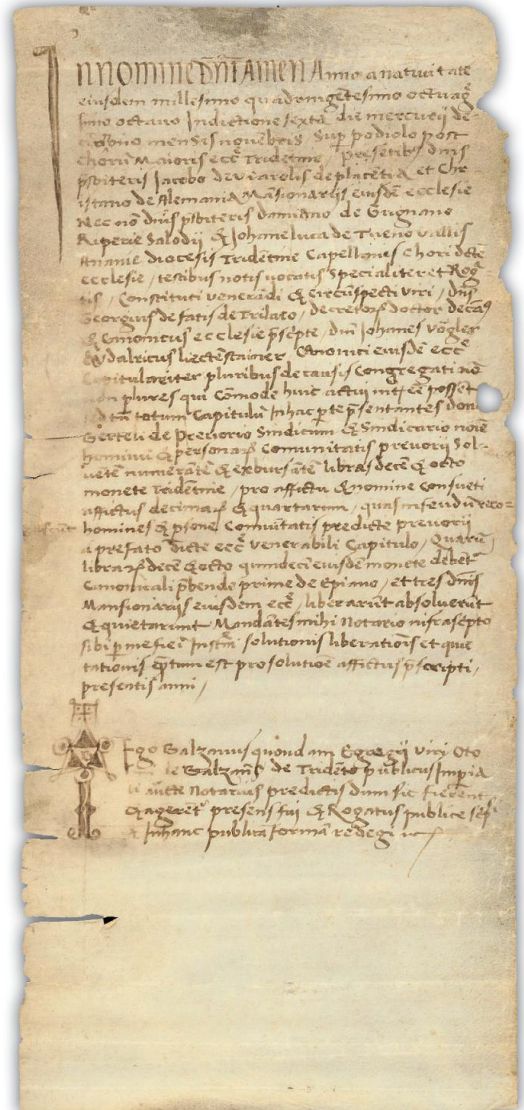 In nomine dnī Amen Anno a nativitate
eiusdem millesimo quadringētesimo octuag̃
simo octavo Indictione sexta die mercurij de
cimo nono mensis novēbris, Sup podiolo post
chorū Maioris eccē Tridentine, presētib9 dnis
p̄sbiteris Jacobo de vearolis de placētia et Chr
istano de Alemania Mansionarijs eiusdē ecclesie
Nec nō dnis p̄sbiteris damiano de Grignano
Riperie Salodij & Johane luca de Tueno vallis
Ananie diocesis Tridentine Capellanis chori dcte
ecclesie, testibus notis vocatis Specialiter et Rog̃
tis, Constituti venerādi & circūspecti viri, dn̄s
Georgius de fatis de Trilaco, decretoꝝ doctor decan9
& Canonicus ecclesie p̄septe, dn̄i Johanes vogler
& vdalricus liechtestainer, Canonici eiusdē eccē
Capitulariter pluribus de causis Congregati
non plures qui cōmode huic actui intēē possēt
totum Capitulū In hac pte p̄sentantes
Berteli de Preriorio Sindicum & Sindicario noīe
hominū & personaꝝ Comunitatis prevorij Sol-
vētē numerātē & exbursātē libras decē & octo
monete Tridentine, pro affictu & nomine Consueti
affictus decimaꝝ & quartarum, quas in feudū reco-
homines & psone Comūitatis predicte prevorij
a prefato dicte eccē venerabili Capitulo, Quarū
libraꝝ decē & octo quindeci eiusdē monete debēt
Canonicali p̄bende prime de Epiano, et tres dnīs
Mansionarijs eiusdem eccē, liberarūt absolverūt
& quietarunt Mandātes mihi Notario infrasepto
sibi p me fieri Instm̄ solutionis liberatiōis et quie
tationis eptum est pro solutioē affictus p̄scripti,
presentis anni,
Ego Galzanus quondam Egregij viri Oto
de Galzanis de Tridēto publicus Impia
li aucte Notarius predictis dum sic fierent
& agerēt presens fui & Rogatus publice
In hanc publicā formā redegi